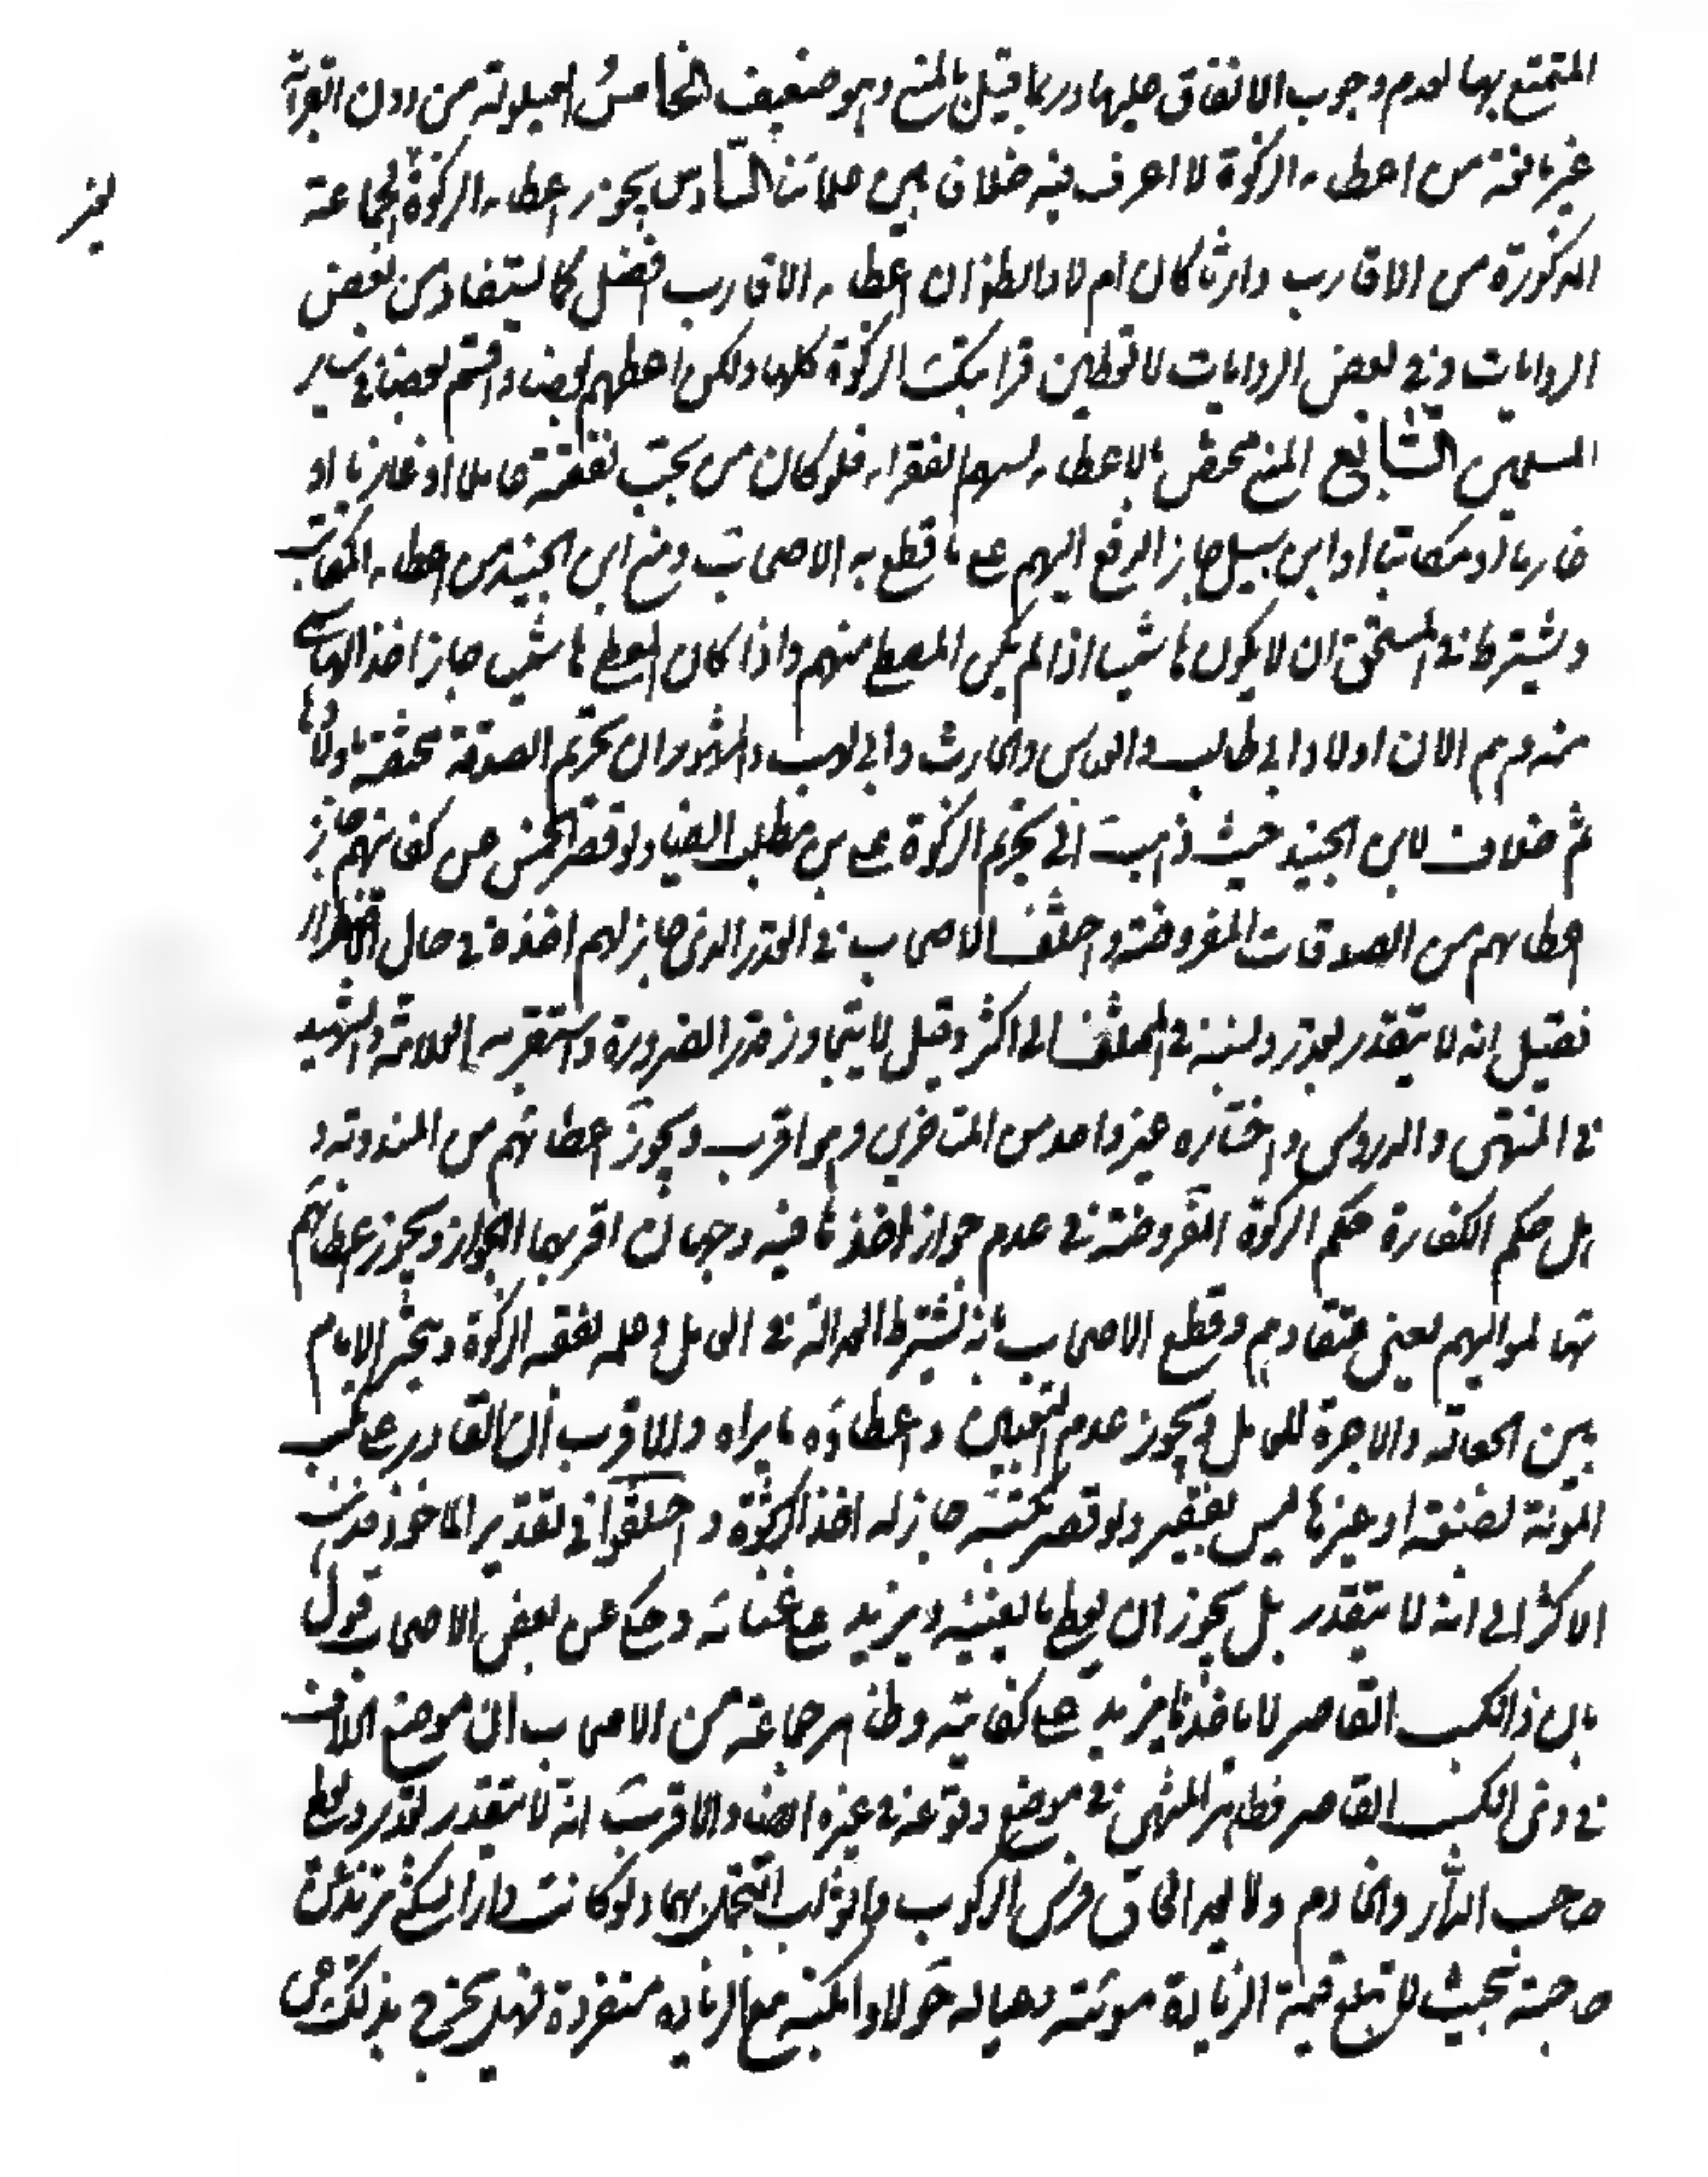 المتمتع بها لعدم وجوب الانفاق عليها وربما قيل بالمنع وهو ضعيف الخامس العيلولة من دون القرابة
غير مانعة من اعطاء الزكوة لا اعرف فيه خلافا بين علمائنا السادس يجوز اعطاء الزكوة لجماعة
المذكورة من الاقارب وارثا كان ام لا والظ ان اعطاء الاقارب افضل كما يستفاد من بعض
الروايات وفي بعض الروايات لا تعطين قرابتك الزكوة كلها ولكن اعطهم بعضا واقسم بعضا في ساير
المسلمين السابع المنع مختص بالاعطاء لسهم الفقراء فلو كان من يجب نفقته عاملا او غازيا او
غارما او مكاتبا او ابن سبيل جاز الدفع اليهم على ما قطع به الاصحاب ومنع ابن الجنيد من اعطاء المكاتب
ويشترط في المستحق ان لا يكون هاشميا اذا لم يكن المعطي منهم واذا كان المعطي هاشميا جاز اخذ الهاشمي
منه وهم الان اولاد ابي طالب والعباس والحارث وابي لهب والمشهور ان تحريم الصدقة مختصة باولاد ها
شم خلافا لابن الجنيد حيث ذهب الى تحريم الزكوة على بني مطلب ايضا ولو قصر الخمس عن كفايتهم جاز
اعطاءهم من الصدقات المفروضة واختلف الاصحاب في القدر الذي جاز لهم اخذه في حال الاضطرار
فقيل انه لا يتقدر بقدر ونسبه في المختلف الى اكثر وقيل لا يتجاوز قدر الضرورة واستقربه العلامة والشهيد
في المنتهى والدروس واختاره غير واحد من المتاخرين وهو اقرب ويجوز اعطائهم من المندوبة و
هل حكم الكفارة حكم الزكوة المفروضة في عدم جواز اخذها فيه وجهان اقربهما الجواز ويجوز اعطائهم
تها لمواليهم يعني عتقاءهم وقطع الاصحاب بانه يشترط العدالة في العامل وعلمه بفقه الزكوة ويتخير الامام
بين الجعالة والاجرة للعامل ويجوز عدم التعيين واعطاؤه ما يراه والاقرب ان القادر على كسب
المؤنة بصنعة او غيرها ليس بفقير ولو قصر كسبه جاز له اخذ الزكوة واختلفوا في تقدير الماخوذ فذهب
الاكثر الى انه لا يتقدر بل يجوز ان يعطى ما يغنيه ويزيد على غناه وحكي عن بعض الاصحاب قول
بان ذا الكسب القاصر لا ياخذ ما يزيد على كفايته وظاهر جماعة من الاصحاب ان موضع الخلاف
في ذي الكسب القاصر فظاهر المنتهى في موضع وقوعه في غيره ايضا والاقرب انه لا يتقدر بقدر ويعطى
صاحب الدار والخادم ولا يبعد الحاق فرس الركوب والثوب التجمل بهما ولو كانت دار السكنى تزيد عن
حاجته بحيث بلغ قيمة الزيادة مؤنته وعياله حولا وامكنه بيع الزيادة منفردة فهل يخرج بذلك عن